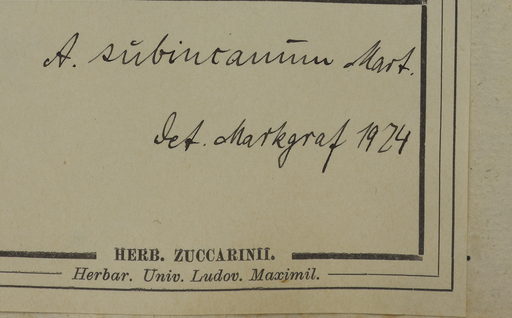 A. subincanum Mart.
Det. Markgraf 1974
HERB. ZUCCARINII.
Herbar. Univ. Ludov. Maximil.